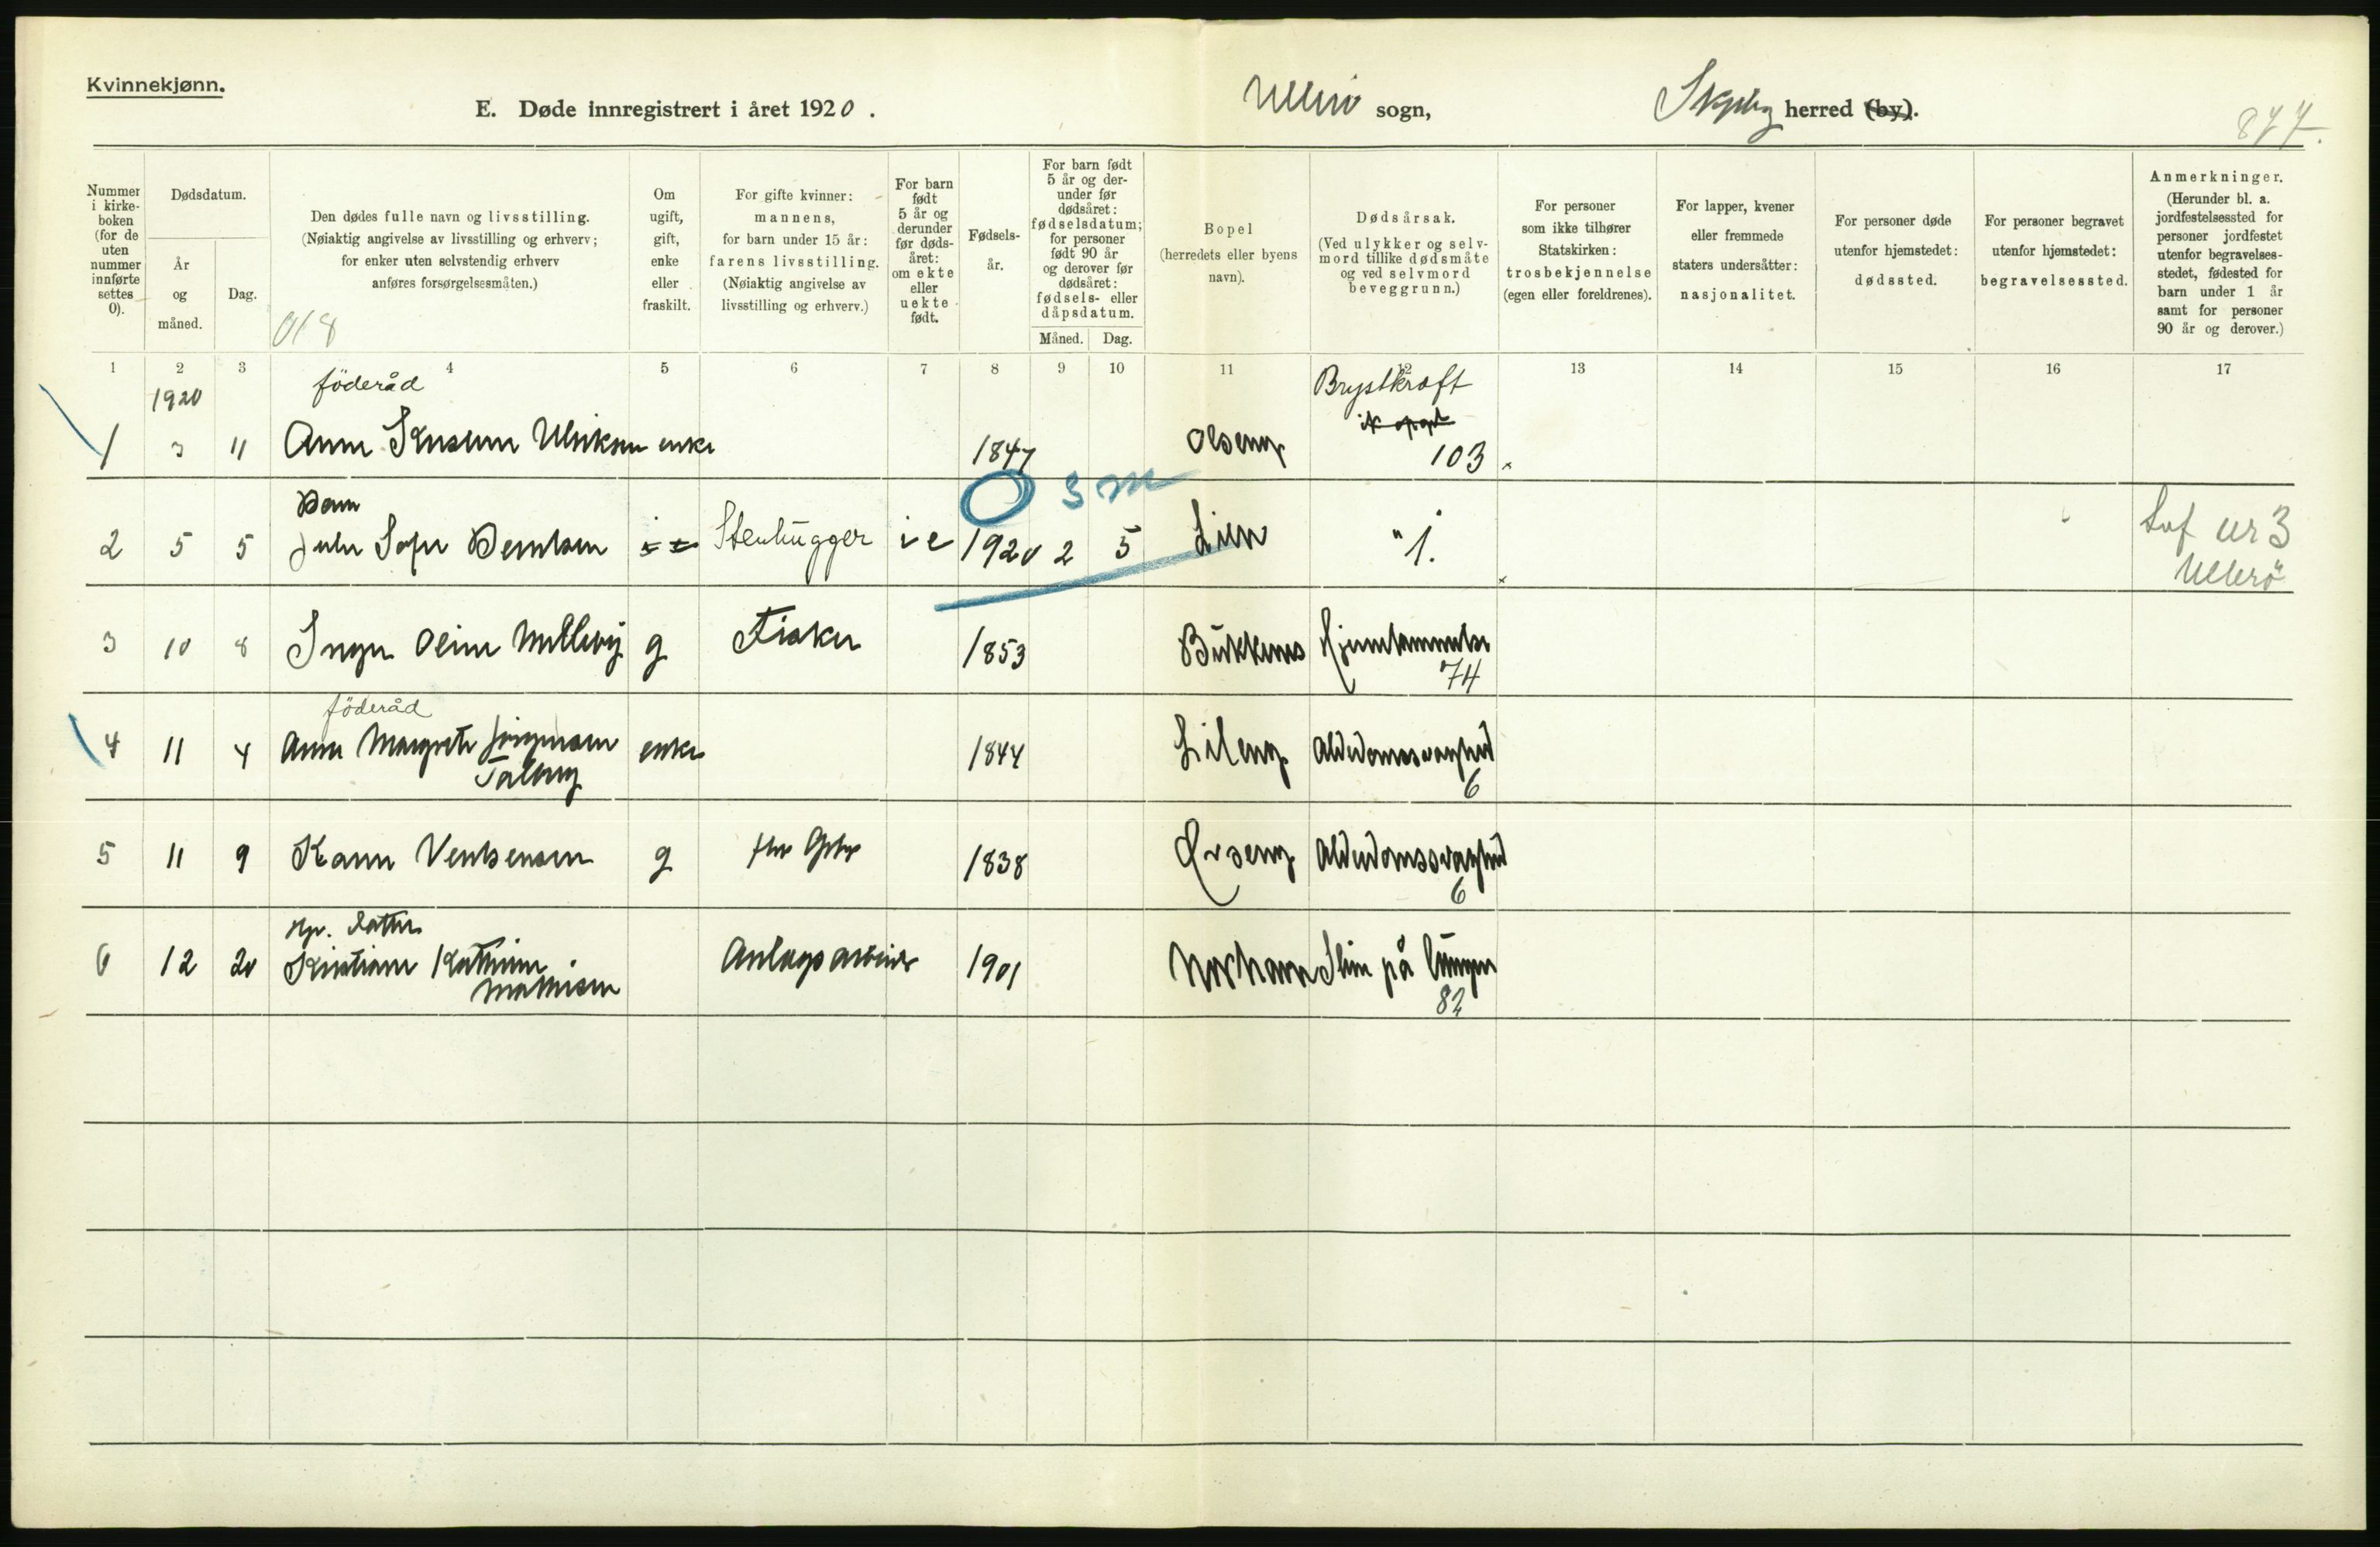 Kvinnekjønn.
E. Døde innregistrert i året 1920.
Ullerö sogn,
Skjeberg herred (by).
877.
Nummer i kirkeboken (for de uten nummer innførte settes 0).
Dødsdatum.
År og måned.
Dag.
Den dødes fulle navn og livsstilling.
(Nøiaktig angivelse av livsstilling og erhverv; for enker uten selvstendig erhverv anføres forsørgelsesmåten.)
018
Om ugift, gift, enke eller fraskilt.
For gifte kvinner: mannens, for barn under 15 år: farens livsstilling.
(Nøiaktig angivelse av livsstilling og erhverv.)
For barn født 5 år og derunder før dødsåret: om ekte eller uekte født.
Fødselsår.
For barn født 5 år og derunder før dødsåret: fødselsdatum; for personer født 90 år og derover før dødsåret: fødsels- eller dåpsdatum.
Måned. Dag.
Bopel
(herredets eller byens navn).
Dødsårsak.
(Ved ulykker og selvmord tillike dødsmåte og ved selvmord beveggrunn.)
For personer som ikke tilhører Statskirken: trosbekjennelse (egen eller foreldrenes).
For lapper, kvener eller fremmede staters undersåtter: nasjonalitet.
For personer døde utenfor hjemstedet: dødssted.
For personer begravet utenfor hjemstedet: begravelsessted.
Anmerkninger.
(Herunder bl. a. jordfestelsessted for personer jordfestet utenfor begravelsesstedet, fødested for barn under 1 år samt for personer 90 år og derover.)
1 2 3 4 5 6 7 8 9 10 11 12 13 14 15 16 17
1920 föderåd Brystkræft
1 3 11 Anne enke 1847 Olseng 103
0 3 m
Barn
2 5 5 Sofie Berntsen Stenhugger i e 1920 2 5 Lien " 1.
Ullerö
3 10 8 Inger Oline g Fisker 1853 Hjernehammelse 74
föderåd
4 11 4 Anne Margrete Jörgensen enke 1844 Lileng Alderdomssvaghed
6
5 11 9 Karen g 1838 Alderdomssvaghed
6
datter
6 12 20 Kristiane Kathrine Anlægsarbeider 1901 Slim på lungen
Mathisen 82